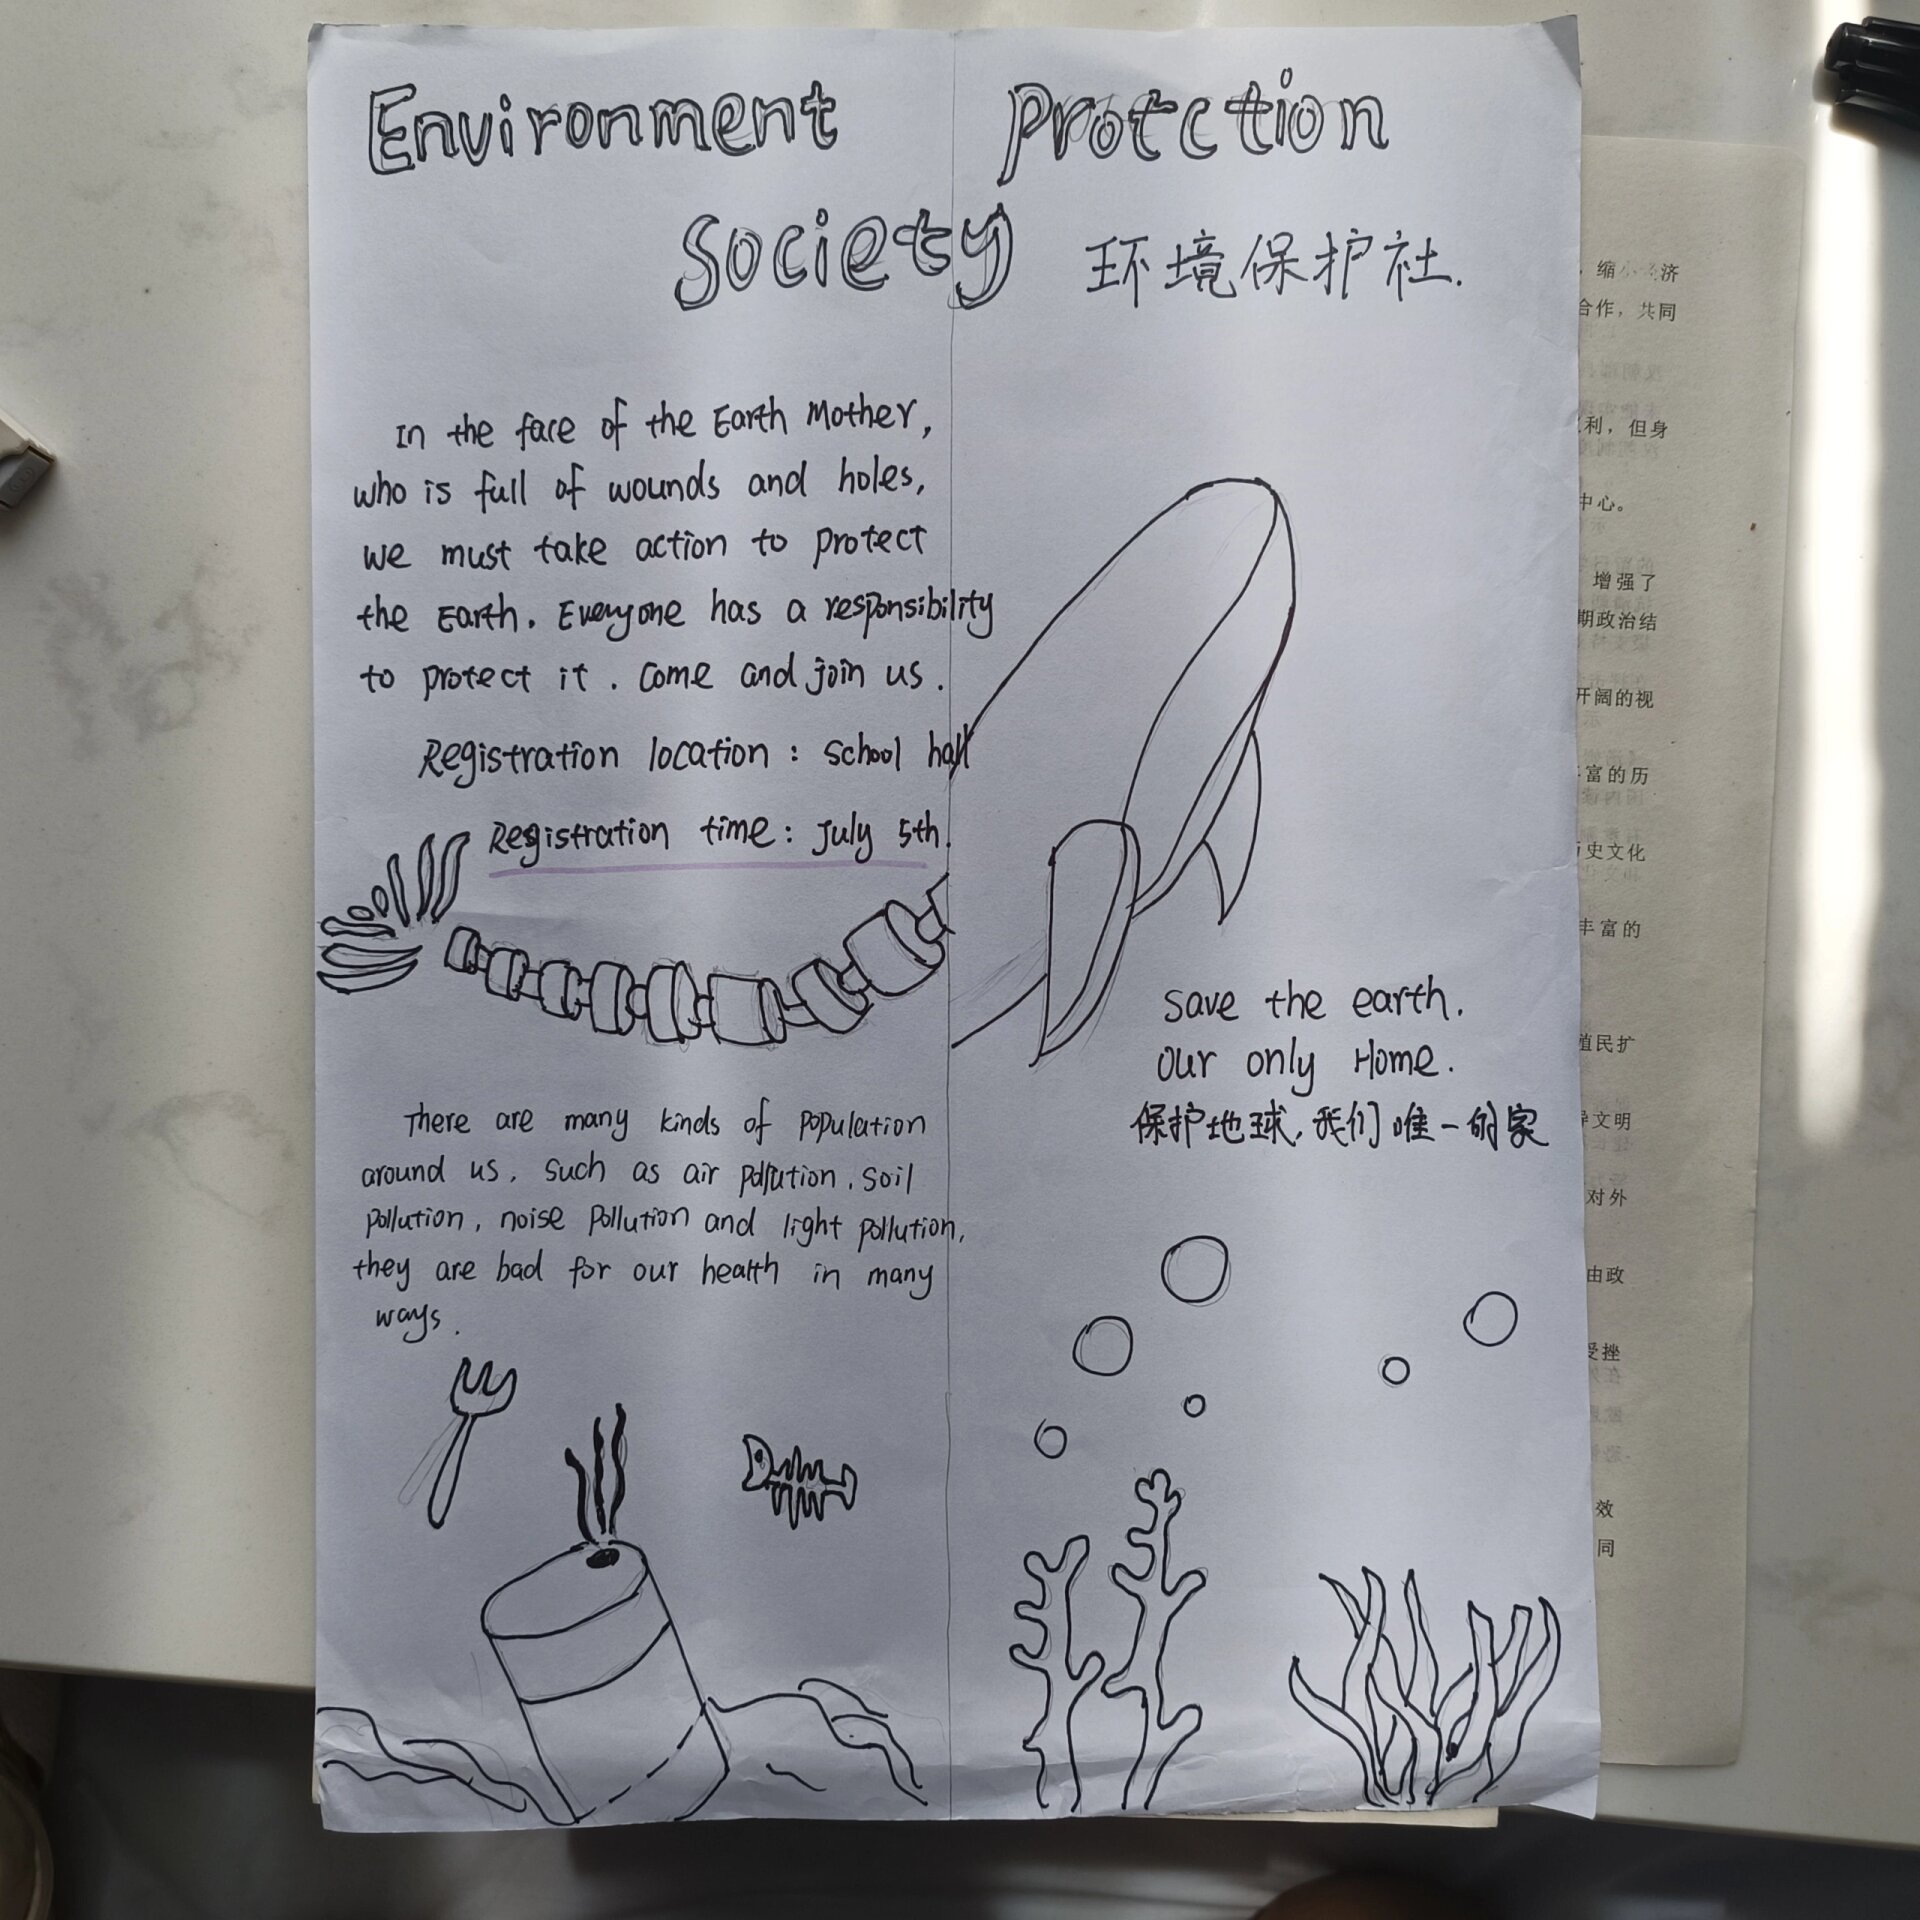 Environment Protction
Society 环境保护社.
In the face of the Earth Mother,
who is full of wounds and holes,
we must take action to protect
the Earth. Everyone has a responsibility
to protect it. Come and join us.
Registration location: School hall
Registration time: July 5th.
Save the earth.
Our only Home.
保护地球,我们唯一的家
There are many kinds of population
around us, such as air pollution, soil
pollution, noise pollution and light pollution,
they are bad for our health in many
ways.
缩小 济
合作，共同
利，但身
中心。
增强了
期政治结
开阔的视
富的历
史文化
丰富的
殖民扩
文明
对外
由政
受挫
效
同